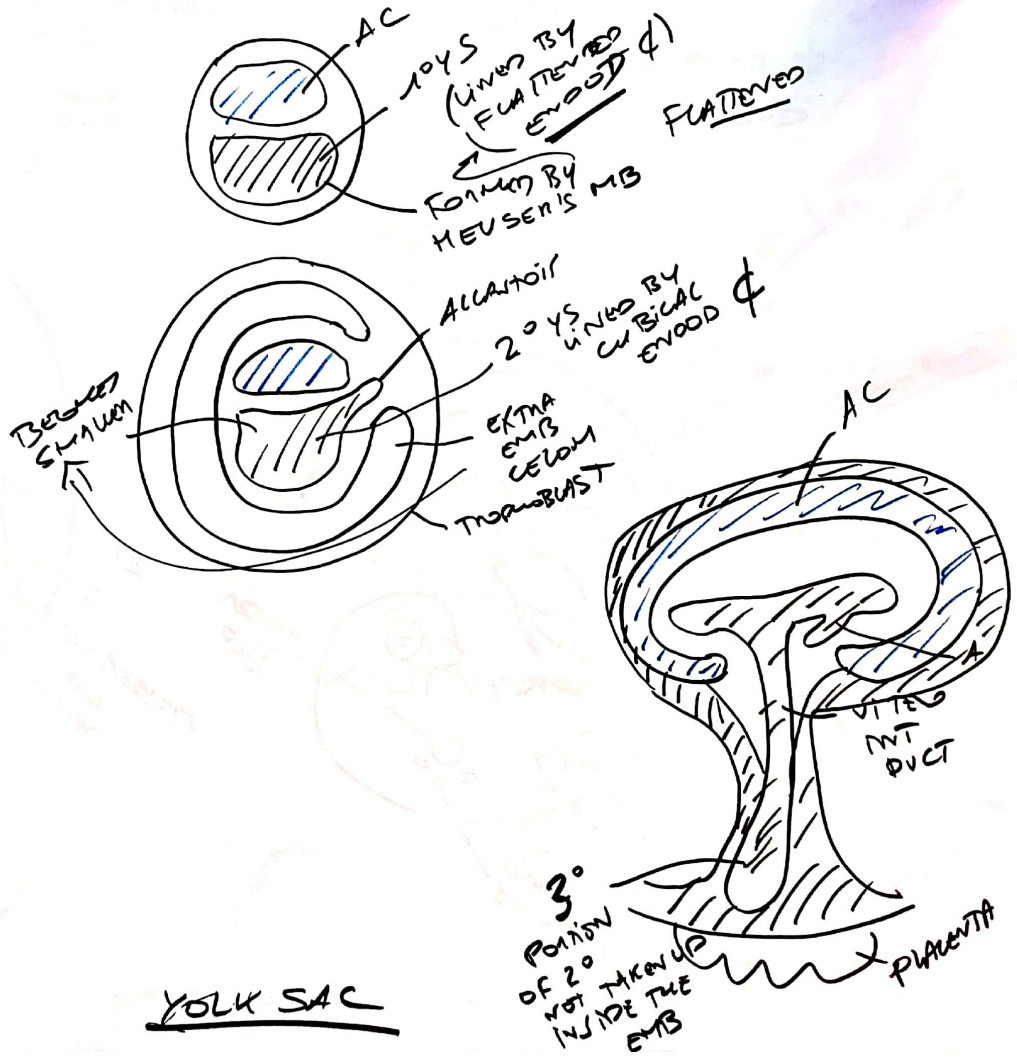 AC
1° YS
(LINED BY
FLATTENED
ENDOD ₵)
FLATTENED
FORMED BY
HEUSER'S MB
ALLANTOIS
2° YS
LINED BY
CUBICAL
ENDOD ₵
BECOMES
SMALLER
EXTRA
EMB
CELOM
TROPHOBLAST
AC
A
VITELO
INT
DUCT
3°
PORTION
OF 2°
NOT TAKEN UP
INSIDE THE
EMB
PLACENTA
YOLK SAC